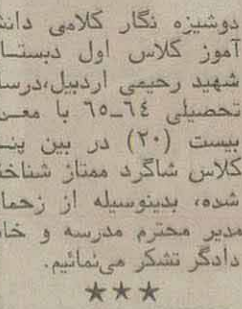 دوشیزه نگار کلامی دانش
آموز کلاس اول دبستـا
شهید رحیمی اردبیل،درسا
تحصیلی ٦٤ـ٦٥ با معـد
بیست (۲۰) در بین پنـ
کلاس شاگرد ممتاز شناخت
شده، بدینوسیله از زحما
مدیر محترم مدرسه و خان
دادگر تشکر می‌نمائیم.
★★★